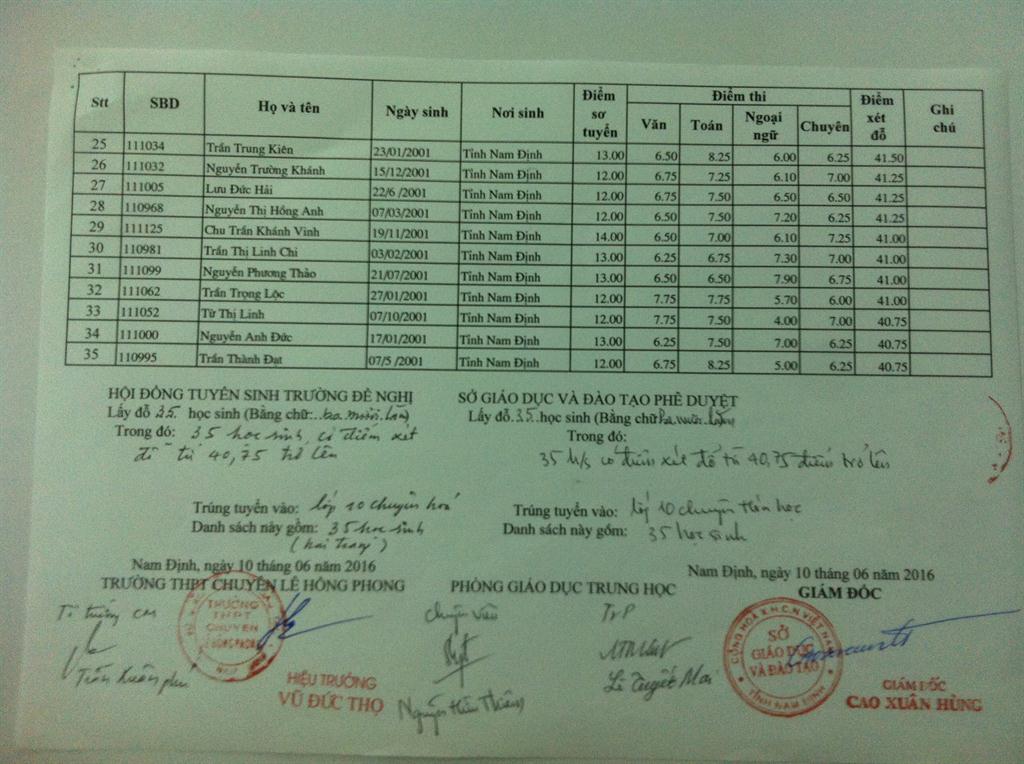 Stt SBD Họ và tên Ngày sinh Nơi sinh Điểm sơ tuyển Điểm thi Điểm xét đỗ Ghi chú
Văn Toán Ngoại ngữ Chuyên
25 111034 Trần Trung Kiên 23/01/2001 Tỉnh Nam Định 13.00 6.50 8.25 6.00 6.25 41.50
26 111032 Nguyễn Trường Khánh 15/12/2001 Tỉnh Nam Định 12.00 6.75 7.25 6.10 7.00 41.25
27 111005 Lưu Đức Hải 22/6 /2001 Tỉnh Nam Định 12.00 6.75 7.50 6.50 6.50 41.25
28 110968 Nguyễn Thị Hồng Anh 07/03/2001 Tỉnh Nam Định 12.00 6.50 7.50 7.20 6.25 41.25
29 111125 Chu Trần Khánh Vinh 19/11/2001 Tỉnh Nam Định 14.00 6.50 7.00 6.10 7.25 41.00
30 110981 Trần Thị Linh Chi 03/02/2001 Tỉnh Nam Định 13.00 6.25 6.75 7.30 7.00 41.00
31 111099 Nguyễn Phương Thảo 21/07/2001 Tỉnh Nam Định 13.00 6.50 6.50 7.90 6.75 41.00
32 111062 Trần Trọng Lộc 27/01/2001 Tỉnh Nam Định 12.00 7.75 7.75 5.70 6.00 41.00
33 111052 Từ Thị Linh 07/10/2001 Tỉnh Nam Định 12.00 7.75 7.50 4.00 7.00 40.75
34 111000 Nguyễn Anh Đức 17/01/2001 Tỉnh Nam Định 13.00 6.25 7.50 7.00 6.25 40.75
35 110995 Trần Thành Đạt 07/5 /2001 Tỉnh Nam Định 12.00 6.75 8.25 5.00 6.25 40.75
HỘI ĐỒNG TUYỂN SINH TRƯỜNG ĐỀ NGHỊ
Lấy đỗ 35 học sinh (Bằng chữ: ba mươi lăm)
Trong đó: 35 học sinh có điểm xét
đỗ từ 40,75 trở lên
Trúng tuyển vào: lớp 10 chuyên hoá
Danh sách này gồm: 35 học sinh
(hai trang)
Nam Định, ngày 10 tháng 06 năm 2016
TRƯỜNG THPT CHUYÊN LÊ HỒNG PHONG
TRƯỜNG
THPT
CHUYÊN
HIỆU TRƯỞNG
VŨ ĐỨC THỌ
SỞ GIÁO DỤC VÀ ĐÀO TẠO PHÊ DUYỆT
Lấy đỗ 35 học sinh (Bằng chữ ba mươi lăm)
Trong đó:
35 h/s có điểm xét đỗ từ 40,75 điểm trở lên
Trúng tuyển vào: lớp 10 chuyên Hóa học
Danh sách này gồm: 35 học sinh
PHÒNG GIÁO DỤC TRUNG HỌC
Chuyên viên
TrP
Lê Tuyết Mai
Nam Định, ngày 10 tháng 06 năm 2016
GIÁM ĐỐC
CỘNG HÒA X.H.C.N VIỆT NAM
SỞ
GIÁO DỤC
VÀ ĐÀO TẠO
TỈNH NAM ĐỊNH
GIÁM ĐỐC
CAO XUÂN HÙNG